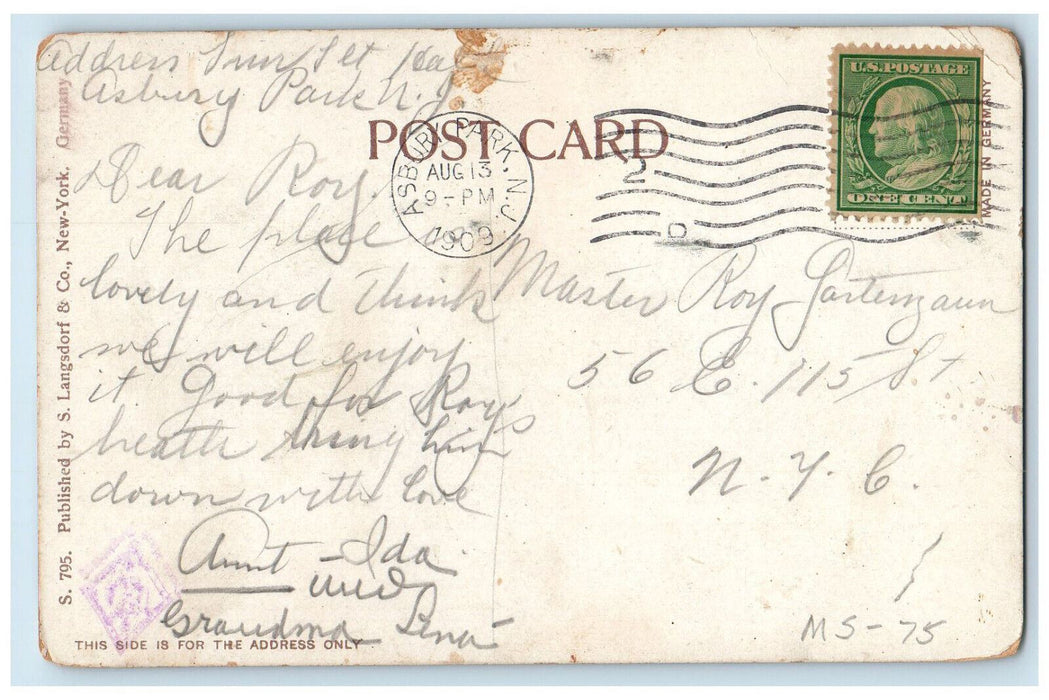 Address Sun Set
Asbury Park N.J.
POST CARD
ASBURY PARK, N.J.
AUG 13
9-PM
1909
2
D
U.S.POSTAGE
ONE CENT
MADE IN GERMANY
Dear Roy.
The place
lovely and think
we will enjoy
it Good for Roy's
heath bring him
down with love
Aunt Ida
and
Grandma Lena
Master Roy Gartenzaun
56 E. 115 St
N. Y. C.
MS-75
S. 795. Published by S. Langsdorf & Co., New-York. Germany
THIS SIDE IS FOR THE ADDRESS ONLY